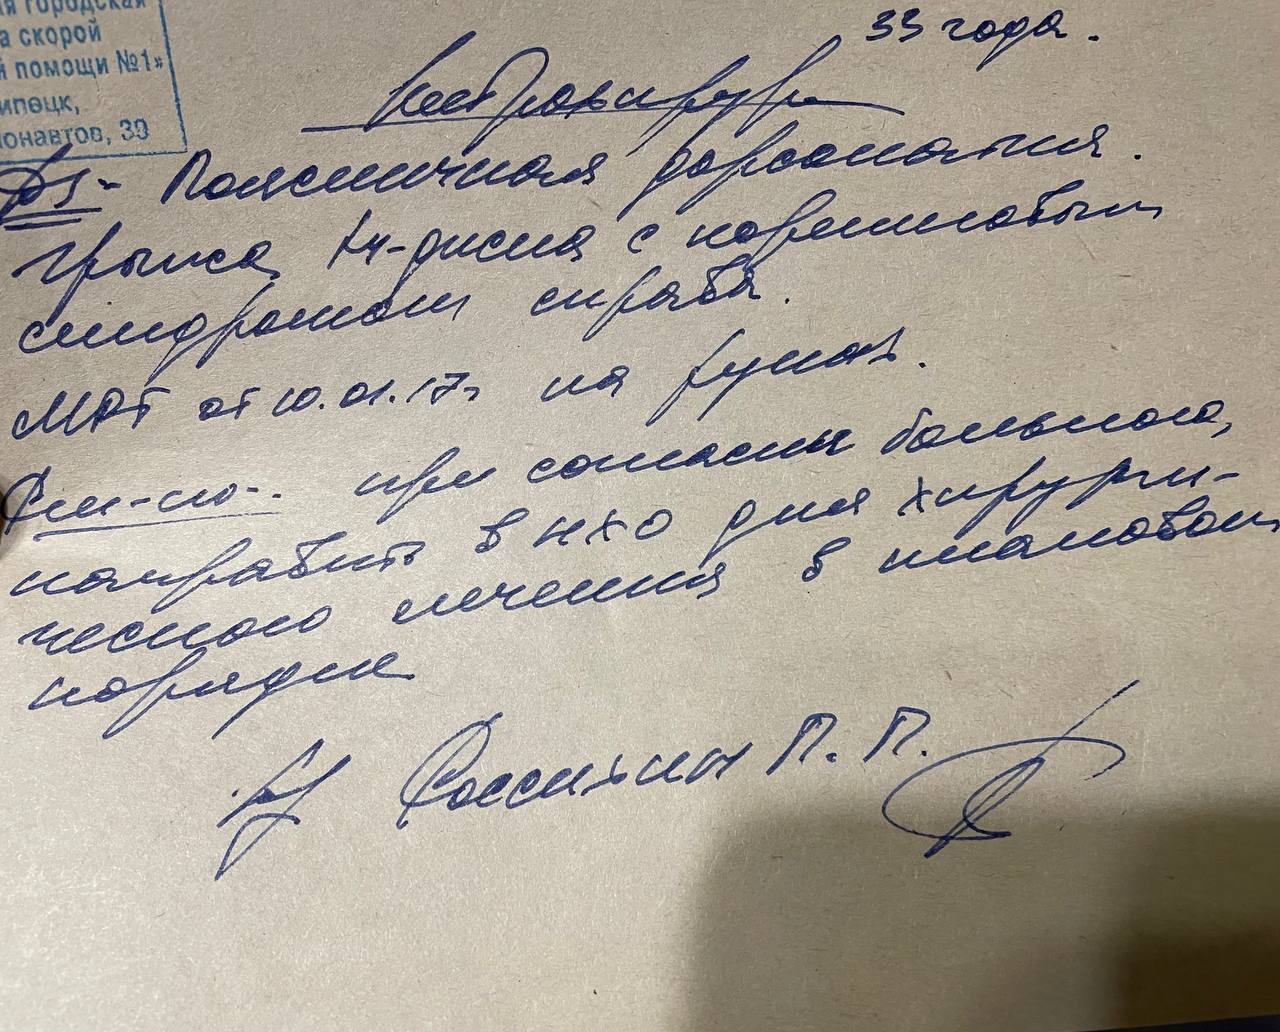 я городская
а скорой
й помощи №1»
ипецк,
монавтов, 39
33 года.
Нейрохирург
DS - Поясничная дорсопатия.
Грыжа L4-диска с корешковым
синдромом справа.
МРТ от 10.01.17г на руках.
Рек-но: при согласии больного,
направить в НХО для хирурги-
ческого лечения в плановом
порядке
П. П.